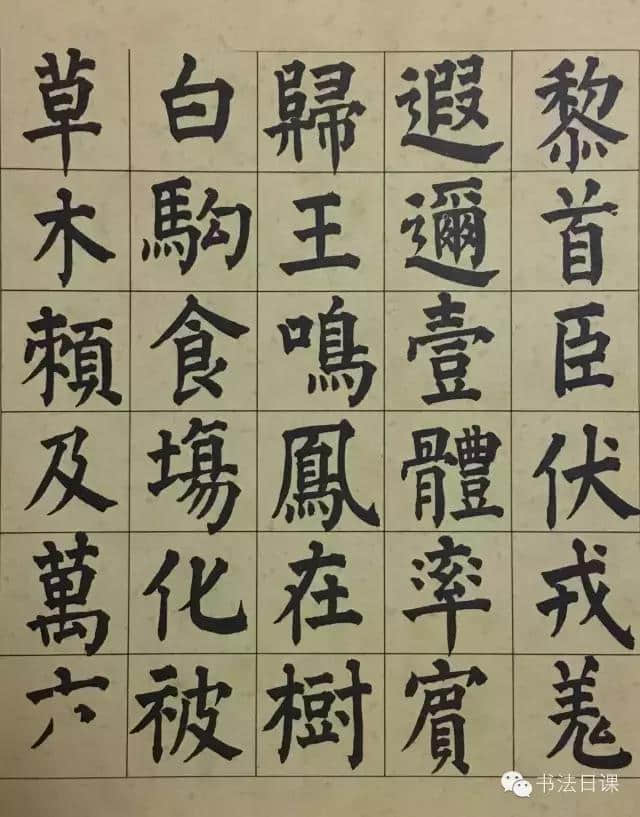 黎首臣伏戎羌
遐邇壹體率賓
歸王鳴鳳在樹
白駒食場化被
草木賴及萬六
书法日课